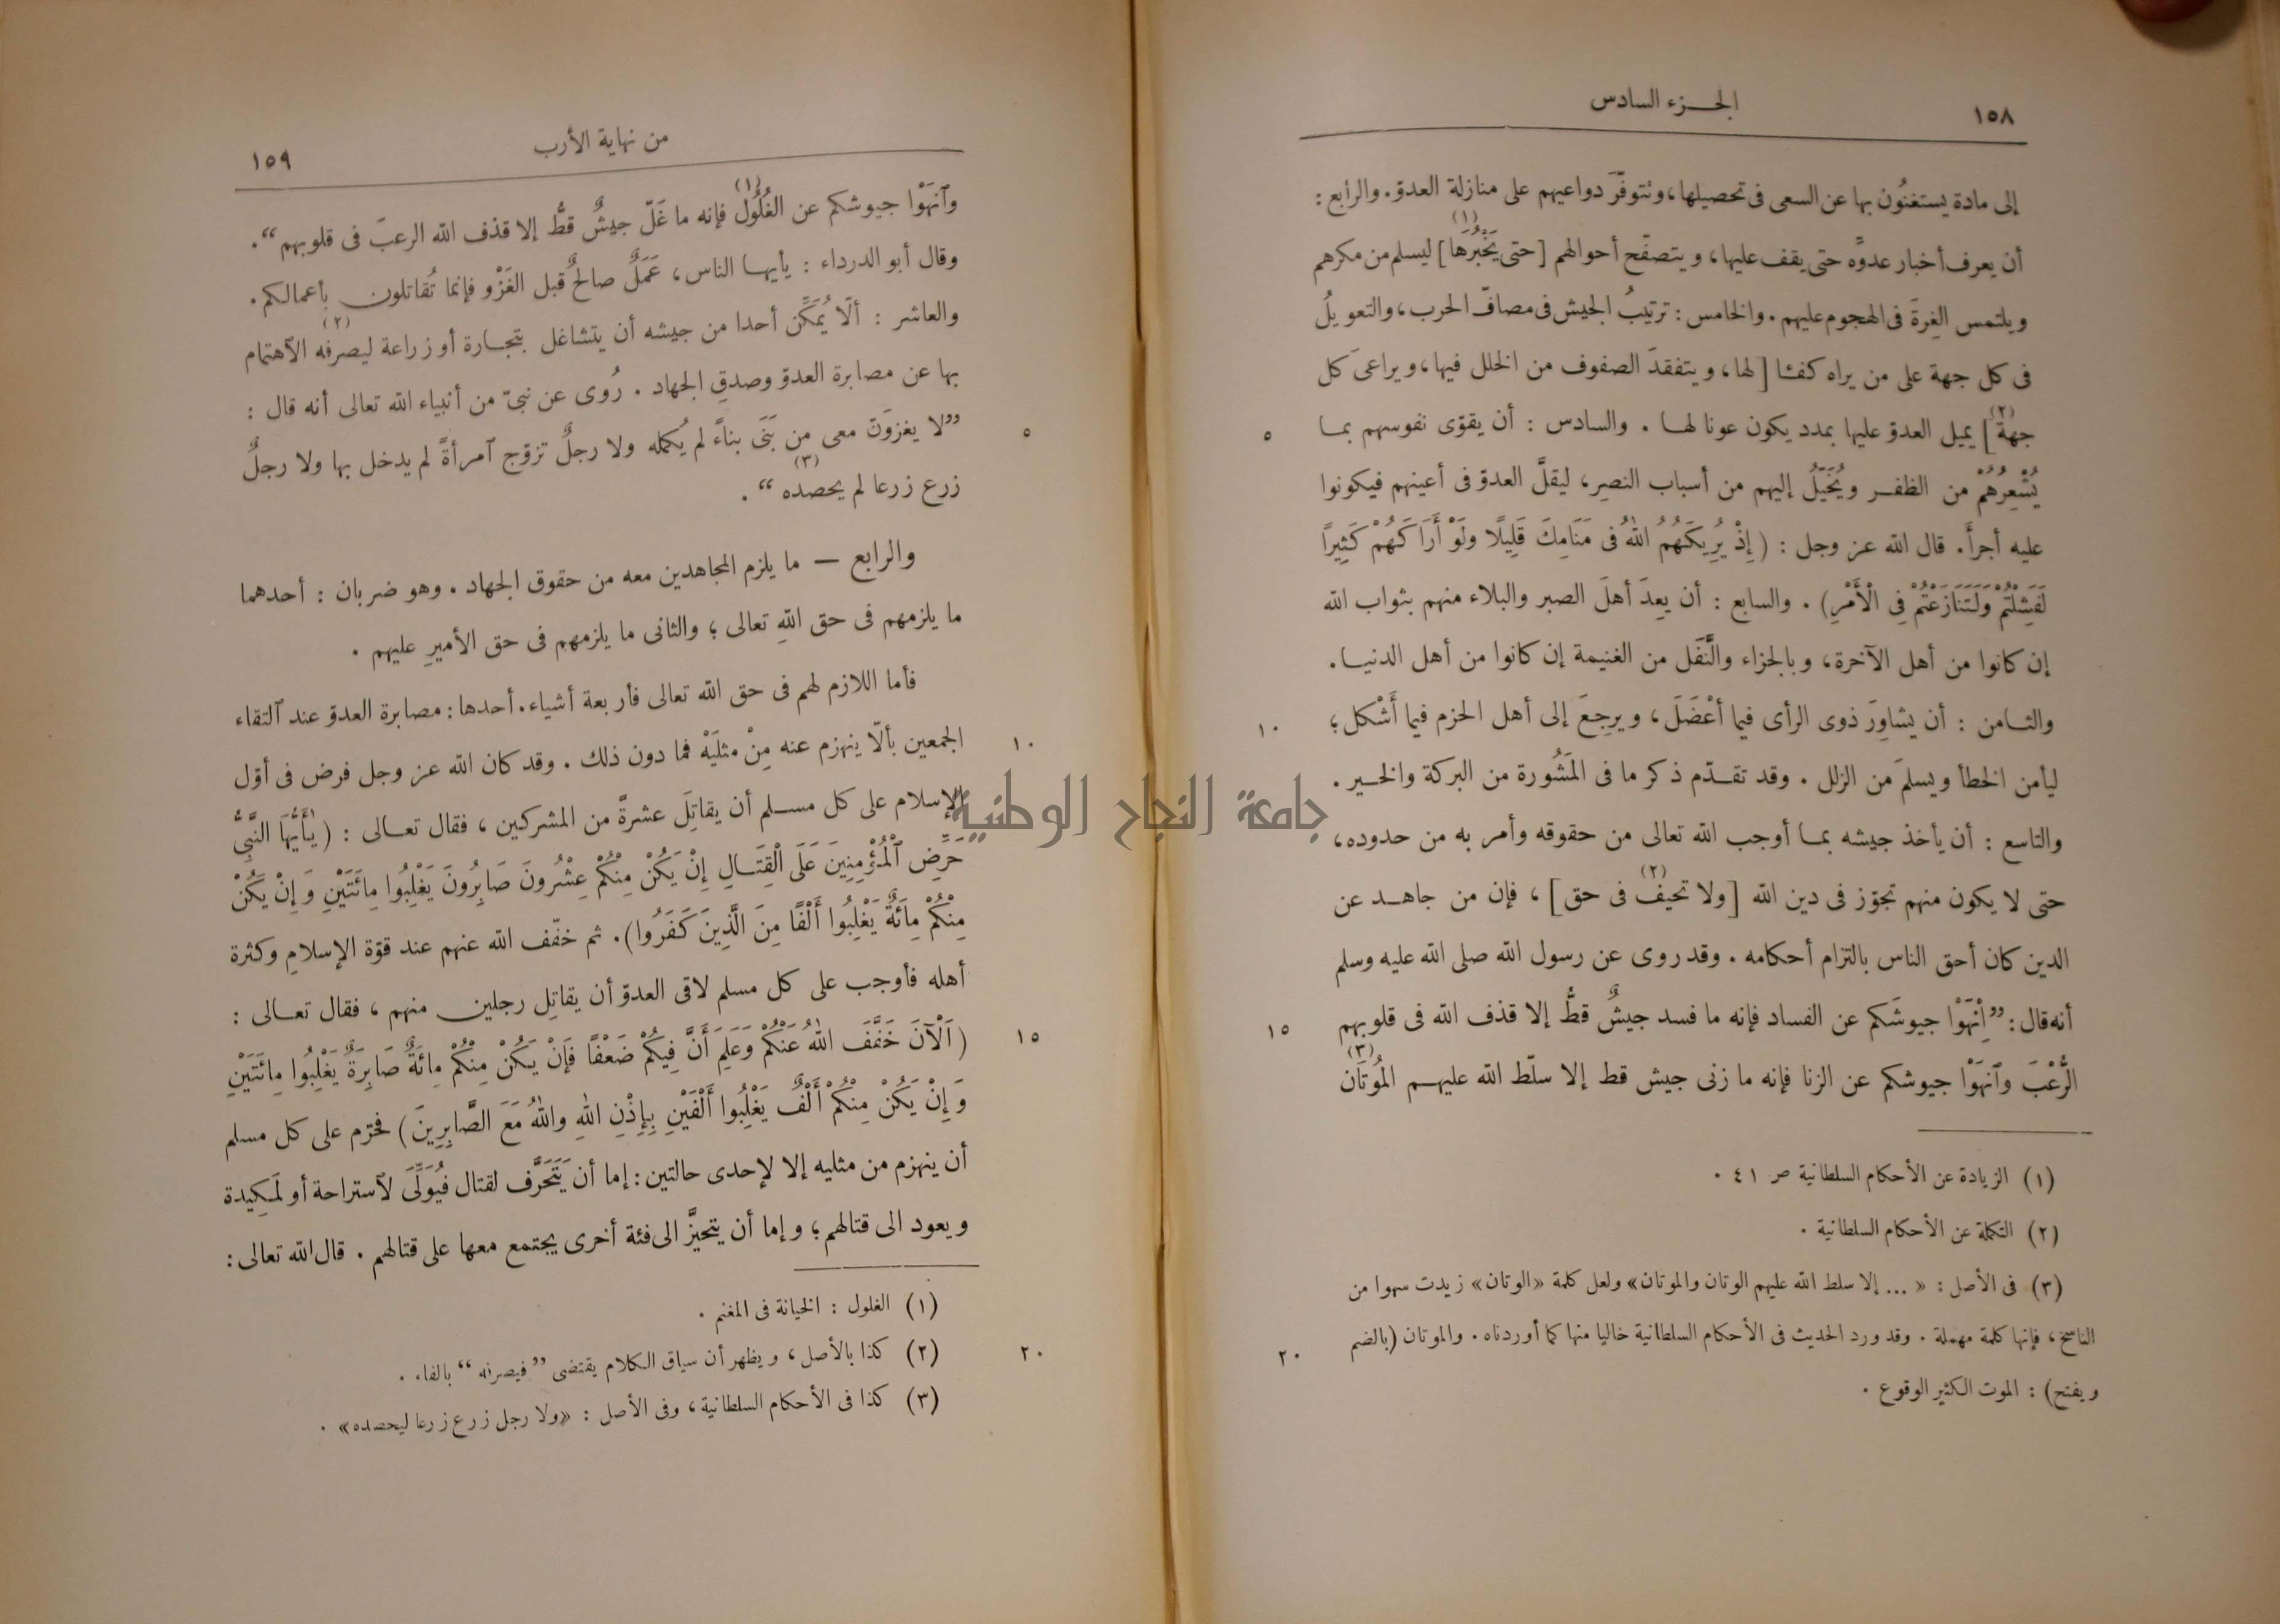 ١٥٨
الجـزء السادس
إلى مادة يستغنُون بها عن السعى فى تحصيلها، ونتوفّرَ دواعيهم على منازلة العدوّ. والرابع :
أن يعرف أخبار عدوّه حتى يقف عليها، ويتصفّح أحوالهم [حتى يَخْبُرَها](١) ليسلم من مكرهم
ويلتمس الغِرةَ فى الهجوم عليهم. والخامس : ترتيبُ الجيش فى مصافّ الحرب، والتعويلُ
فى كل جهة على من يراه كفئا [لها، ويتفقدَ الصفوف من الخلل فيها، ويراعىَ كل
جهة](٢) يميل العدوّ عليها بمدد يكون عونا لهـا . والسادس : أن يقوّى نفوسهم بمـا
٥
يُشْعِرُهُمْ من الظفـر ويُخَيِّلُ إليهم من أسباب النصرِ، ليقلَّ العدوّ فى أعينهم فيكونوا
عليه أجرأَ. قال الله عز وجل : ﴿إِذْ يُرِيكَهُمُ اللهُ فى مَنَامِكَ قَلِيلًا ولَوْ أَرَاكَهُمْ كَثِيرًا
لَفَشِلْتُمْ وَلَتَنَازَعْتُمْ فِى الْأَمْرِ﴾ . والسابع : أن يعِدَ أهلَ الصبر والبلاء منهم بثواب الله
إن كانوا من أهل الآخرة، وبالجزاء والنَّفَل من الغنيمة إن كانوا من أهل الدنيـا.
والثـامن : أن يشاوِرَ ذوى الرأى فيما أعْضَلَ، ويرجِعَ إلى أهل الحزم فيما أَشْكل؛
١٠
ليأمن الخطأ ويسلمَ من الزلل . وقد تقـدّم ذكر ما فى المَشُورة من البركة والخـير .
والتاسع : أن يأخذ جيشه بمـا أوجب الله تعالى من حقوقه وأمر به من حدوده،
حتى لا يكون منهم تجوّز فى دين الله [ولا تحيف(٢) فى حق] ، فإن من جاهـد عن
الدين كان أحق الناس بالتزام أحكامه . وقد روى عن رسول الله صلى الله عليه وسلم
أنه قال : ”اِنْهَوْا جيوشَكم عن الفساد فإنه ما فسد جيشٌ قطُّ إلا قذف الله فى قلوبهم
١٥
الرُّعْبَ وآنهَوْا جيوشكم عن الزنا فإنه ما زنى جيش قط إلا سلّط الله عليهـم المُوتَان(٣)
(١) الزيادة عن الأحكام السلطانية ص ٤١ .
(٢) التكملة عن الأحكام السلطانية .
(٣) فى الأصل : « ... إلا سلط الله عليهم الوتان والموتان» ولعل كلمة «الوتان» زيدت سهوا من
الناسخ، فإنها كلمة مهملة . وقد ورد الحديث فى الأحكام السلطانية خاليا منها كما أوردناه . والموتان (بالضم
٢٠
ويفتح) : الموت الكثير الوقوع .
من نهاية الأرب
١٥٩
وآنهَوْا جيوشكم عن الغُلُول(١) فإنه ما غَلّ جيشٌ قطُّ إلا قذف الله الرعبَ فى قلوبهم“ .
وقال أبو الدرداء : يأيهـا الناس، عَمَلٌ صالحٌ قبل الغَزْو فإنما تُقاتلون بأعمالكم .
والعاشر : ألّا يُمَكِّن أحدا من جيشه أن يتشاغل بتجـارة أو زراعة ليصرفه(٢) الآهتمام
بها عن مصابرة العدوّ وصدقِ الجهاد . رُوى عن نبىّ من أنبياء الله تعالى أنه قال :
”لا يغزوَنّ معى من بَنَى بناءً لم يُكمله ولا رجلٌ تزوّج آمرأةً لم يدخل بها ولا رجلٌ
٥
زرع زرعا لم يحصده(٣) “ .
والرابع — ما يلزم المجاهدين معه من حقوق الجهاد . وهو ضربان : أحدهما
ما يلزمهم فى حق اللهِ تعالى ؛ والثانى ما يلزمهم فى حق الأميرِ عليهم .
فأما اللازم لهم فى حق الله تعالى فأربعة أشياء. أحدها : مصابرة العدوّ عند آلتقاء
الجمعين بألّا ينهزم عنه مِنْ مثلَيْه فما دون ذلك . وقد كان الله عز وجل فرض فى أوّل
١٠
الإسلام على كل مسـلم أن يقاتِلَ عشرةً من المشركين ، فقال تعـالى : ﴿يٰأَيُّهَا النَّبِىُّ
حَرِّضِ ٱلْمُؤْمِنِينَ عَلَى الْقِتَـالِ إِنْ يَكُنْ مِنْكُمْ عِشْرُونَ صَابِرُونَ يَغْلِبُوا مِائَتَيْنِ وَإِنْ يَكُنْ
مِنْكُمْ مِائَةٌ يَغْلِبُوا أَلْفًا مِنَ الَّذِينَ كَفَرُوا﴾. ثم خفّف الله عنهم عند قوّة الإسلامِ وكثرة
أهله فأوجب على كل مسلم لاقى العدوّ أن يقاتِل رجلين منهم ، فقال تعـالى :
﴿اَلْآنَ خَفَّفَ اللهُ عَنْكُمْ وَعَلِمَ أَنَّ فِيكُمْ ضَعْفًا فَإِنْ يَكُنْ مِنْكُمْ مِائَةٌ صَابِرَةٌ يَغْلِبُوا مِائَتَيْنِ
١٥
وَإِنْ يَكُنْ مِنْكُمْ أَلْفٌ يَغْلِبُوا أَلْفَيْنِ بِإِذْنِ اللهِ واللهُ مَعَ الصَّابِرِينَ﴾ فحرّم على كل مسلم
أن ينهزم من مثليه إلا لإحدى حالتين : إما أن يَتَحَرَّف لقتال فيُوَلِّىَ لآستراحة أو لمَكِيدة
ويعود الى قتالهم ؛ وإما أن يتحيَّز الى فئة أخرى يجتمع معها على قتالهم . قال الله تعالى :
(١) الغلول : الخيانة فى المغنم .
(٢) كذا بالأصل، ويظهر أن سياق الكلام يقتضى ”فيصرفه“ بالفاء .
٢٠
(٣) كذا فى الأحكام السلطانية، وفى الأصل : «ولا رجل زرع زرعا ليحصده» .
جامعة النجاح الوطنية